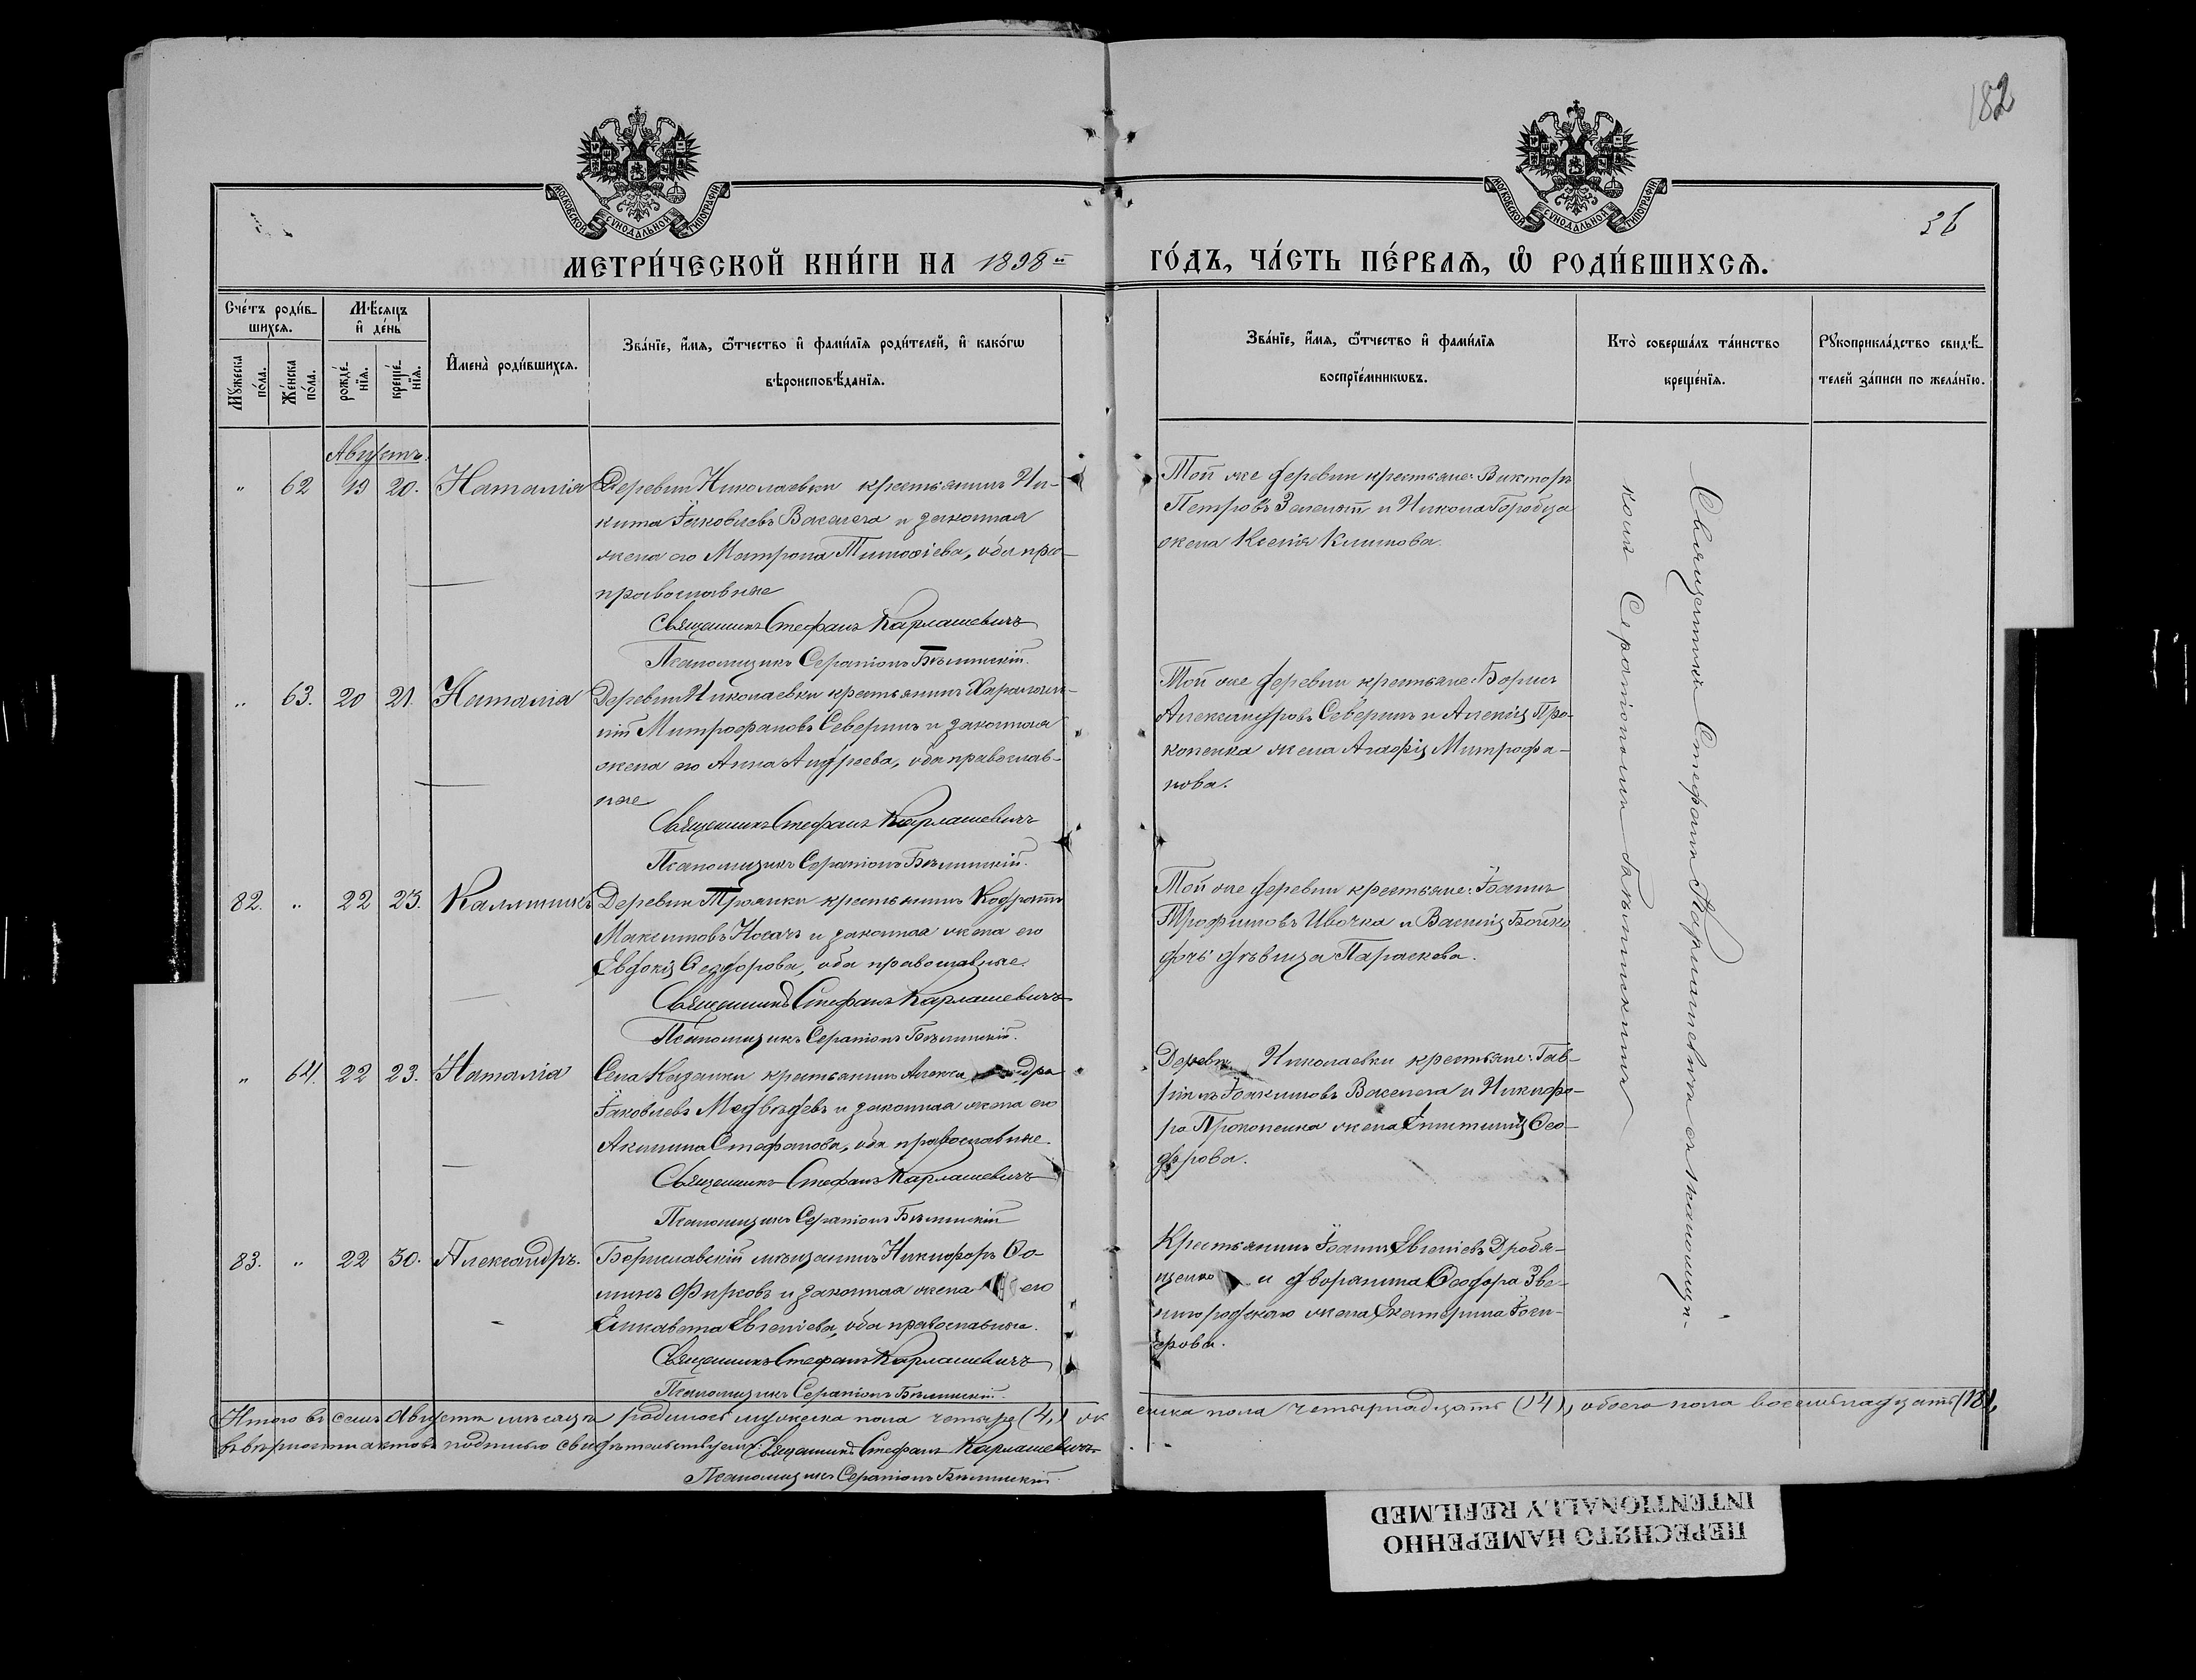 182
МОСКОВСКОЙ СѴНОДАЛЬНОЙ ТИПОГРАФІИ
МОСКОВСКОЙ СѴНОДАЛЬНОЙ ТИПОГРАФІИ
36
МЕТРИ́ЧЕСКОЙ КНИ́ГИ НА 1898й ГО́ДЪ, ЧА́СТЬ ПЕ́РВАѦ, Ѡ҆ РОДИ́ВШИХСѦ.
Сче́тъ роди́в-
шихсѧ.
Мѣ́сѧцъ
и҆ де́нь
Мꙋ́жеска
по́ла.
Же́нска
по́ла.
рожде́-
нїѧ.
креще́-
нїѧ.
И҆мена̀ роди́вшихсѧ.
Зва́нїе, и҆́мѧ, ѻ҆́тчество и҆ фами́лїѧ роди́телей, и҆ како́гѡ
вѣроисповѣ́данїѧ.
Зва́нїе, и҆́мѧ, ѻ҆́тчество и҆ фами́лїѧ
воспрїе́мникѡвъ.
Кто̀ соверша́лъ та́инство
креще́нїѧ.
Рꙋкоприкла́дство свидѣ́-
телей за́писи по жела́нїю.
Августъ.
" 62 19 20. Наталія Деревни Николаевки крестьянинъ Ни-
кита Іаковлевъ Вакелега и законная
жена его Матрона Тимоѳіева, оба пра-
православные
Священникъ Стефанъ Карлашевичъ
Псаломщикъ Серапіонъ Бѣлинскій.
Той же деревни крестьяне: Викторъ
Петровъ и Никола Горобца
жена Ксенія Климова.
" 63. 20 21. Наталія Деревни Николаевки крестьянинъ Харалам-
пій Митрофановъ Северинъ и законная
жена его Анна Андреева, оба православ-
ные
Священникъ Стефанъ Карлашевичъ
Псаломщикъ Серапіонъ Бѣлинскій.
Той же деревни крестьяне: Борисъ
Александровъ Северинъ и Алексія Про-
копенка жена Агафія Митрофа-
нова.
82. " 22 23. Каллиникъ Деревни Троянки крестьянинъ Кодратъ
Максимовъ Носачъ и законная жена его
Евдокія Ѳеодорова, оба православные.
Священникъ Стефанъ Карлашевичъ
Псаломщикъ Серапіонъ Бѣлинскій.
Той же деревни крестьяне: Іоаннъ
Трофимовъ Ивочка и Василія Бойко
дочь дѣвица Параскева.
" 64. 22 23. Наталія Села Казанки крестьянинъ
Іаковлевъ Медвѣдевъ и законная жена его
Акилина Стефанова, оба православные.
Священникъ Стефанъ Карлашевичъ
Псаломщикъ Серапіонъ Бѣлинскій
Деревни Николаевки крестьяне: Гав-
ріилъ Іоакимовъ Вакелега и Никифо-
ра Прокопенка жена Епистимія Ѳео-
дорова.
83. " 22 30. Александръ. Бериславскій мѣщанинъ Никифоръ Ѳо-
минъ Фирсовъ и законная жена его
Елисавета Евгеніева, оба православные.
Священникъ Стефанъ Карлашевичъ
Псаломщикъ Серапіонъ Бѣлинскій.
Крестьянинъ Іоаннъ Евгеніевъ Дробя-
щенко и дворянина Ѳеодора Зве-
нигородскаго жена Екатерина Іоси-
фова.
Священникъ Стефанъ Карлашевичъ съ псаломщи-
комъ Серапіономъ Бѣлинскимъ
Итого въ семъ Августѣ мѣсяцѣ родилось мужеска пола четыре (4,) женска пола четырнадцать (14), обоего пола восемьнадцать (18),
въ вѣрности актовъ подписью свидѣтельствуемъ: Священникъ Стефанъ Карлашевичъ
Псаломщикъ Серапіонъ Бѣлинскій.
ПЕРЕСНЯТО НАМЕРЕННО
INTENTIONALLY REFILMED